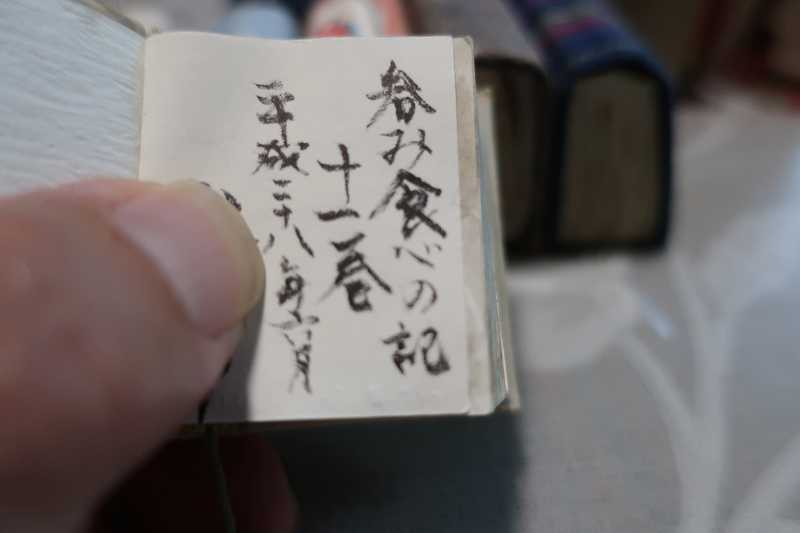 呑み食いの記
十二巻
平成二十八年六月